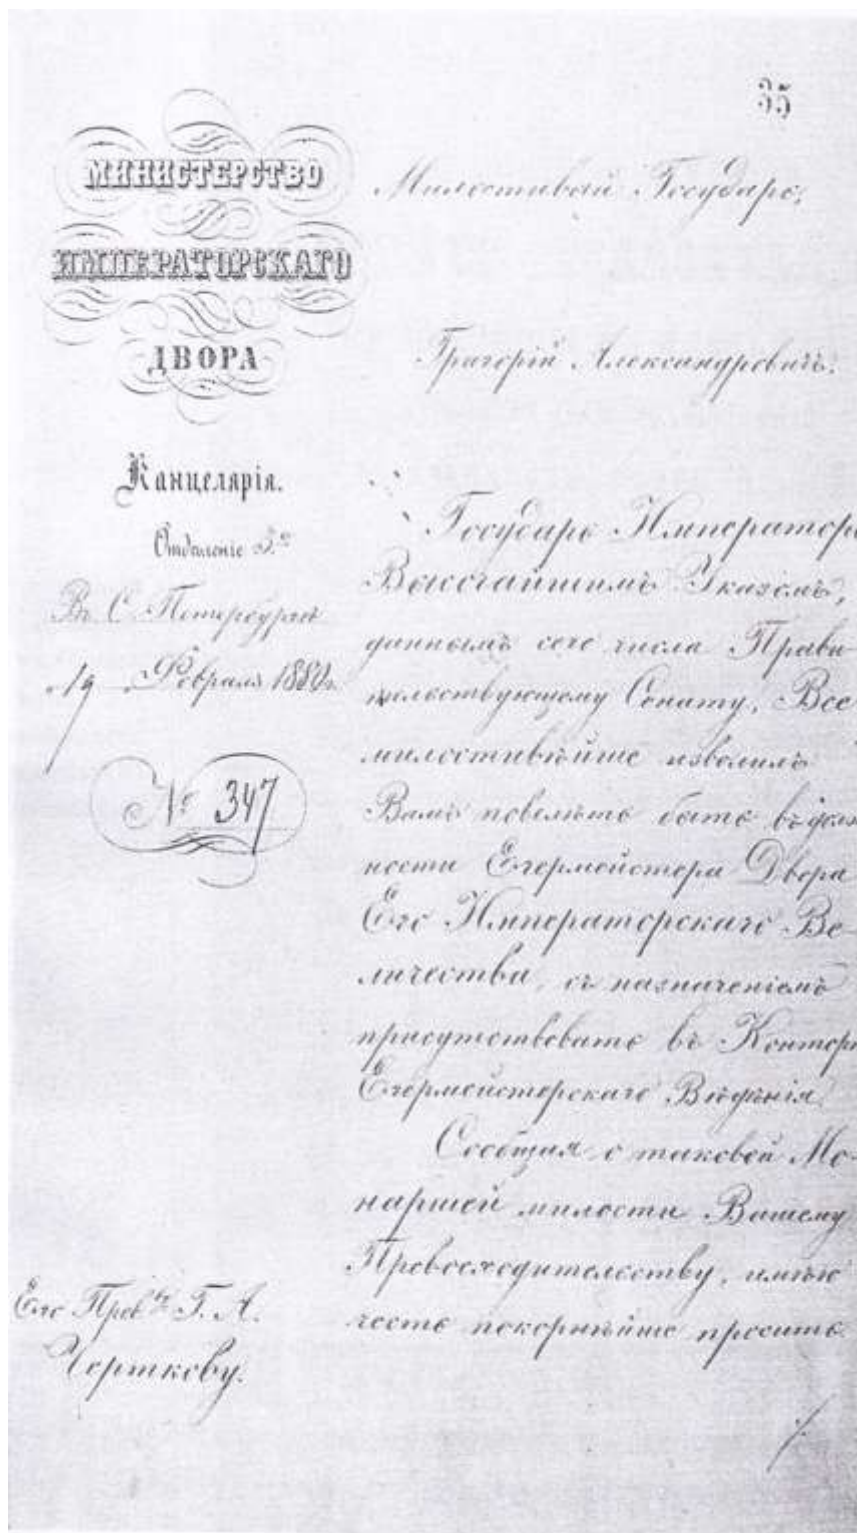 35
МИНИСТЕРСТВО
ИМПЕРАТОРСКАГО
ДВОРА
Канцелярія.
Отдѣленіе
Въ С. Петербургѣ
19 Февраля 1880 г.
№ 347
Его Прев-ву Г. А.
Черткову.
Милостивый Государь,
Григорій Александровичъ.
Государь Императоръ
Высочайшимъ Указомъ,
даннымъ сего числа Прави-
тельствующему Сенату, Все
милостивѣйше изволилъ
Вамъ повелѣть быть въ долж
ности Егермейстера Двора
Его Императорскаго Ве-
личества, съ назначеніемъ
присутствовать въ Конторѣ
Егермейстерскаго Вѣдѣнія.
Сообщая о таковой Мо-
наршей милости Вашему
Превосходительству, имѣю
честь покорнѣйше просить